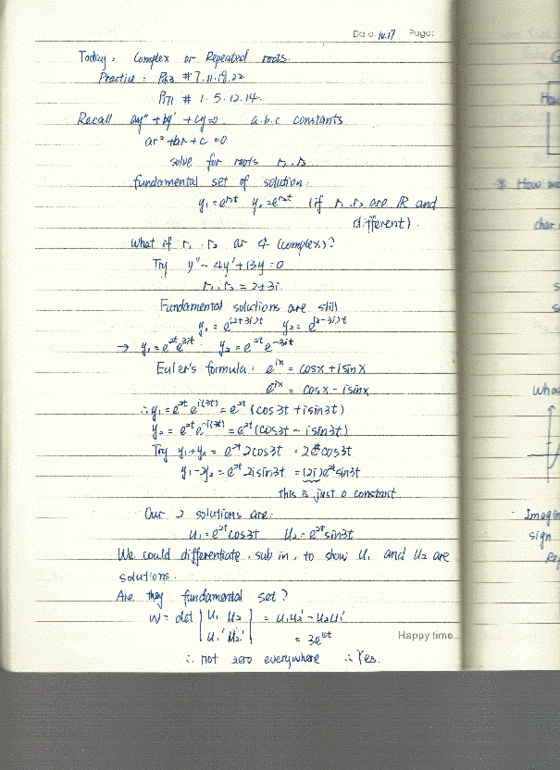 Date 10.17 Page:
Today: Complex or Repeated roots.
Practice: P163 # 7.11.18.22
P171 # 1.5.12.14.
Recall ay'' + by' + cy=0. a.b.c constants
ar² + br + c = 0
solve for roots r₁.r₂
fundamental set of solution:
y₁=e^{r₁t} y₂=e^{r₂t} (if r₁.r₂ are ℝ and
different).
What if r₁.r₂ ar ₵ (complex)?
Try y''-4y'+13y=0
r₁.r₂ = 2±3i.
Fundamental solutions are still
y₁=e^{(2+3i)t} y₂=e^{(2-3i)t}
→ y₁=e^{2t}e^{3it} y₂=e^{2t}e^{-3it}
Euler's formula: e^{ix} = cosx+isinx
e^{ix} = cosx-isinx
∴y₁=e^{2t}e^{i(3t)}=e^{2t}(cos3t+isin3t)
y₂=e^{2t}e^{-i(3t)}=e^{2t}(cos3t-isin3t)
Try y₁+y₂=e^{2t}2cos3t = 2e^{2t}cos3t
y₁-y₂=e^{2t}2isin3t=(2i)e^{2t}sin3t
this is just a constant
Our 2 solutions are:
u₁=e^{2t}cos3t u₂=e^{2t}sin3t
We could differentiate, sub in, to show u₁ and u₂ are
solutions.
Are they fundamental set?
W=det |u₁ u₂| = u₁u₂'-u₂u₁'
|u₁' u₂'| = 3e^{4t}
Happy time
∴ not zero everywhere ∴ Yes.
How
char
Wha
Imagin
sign